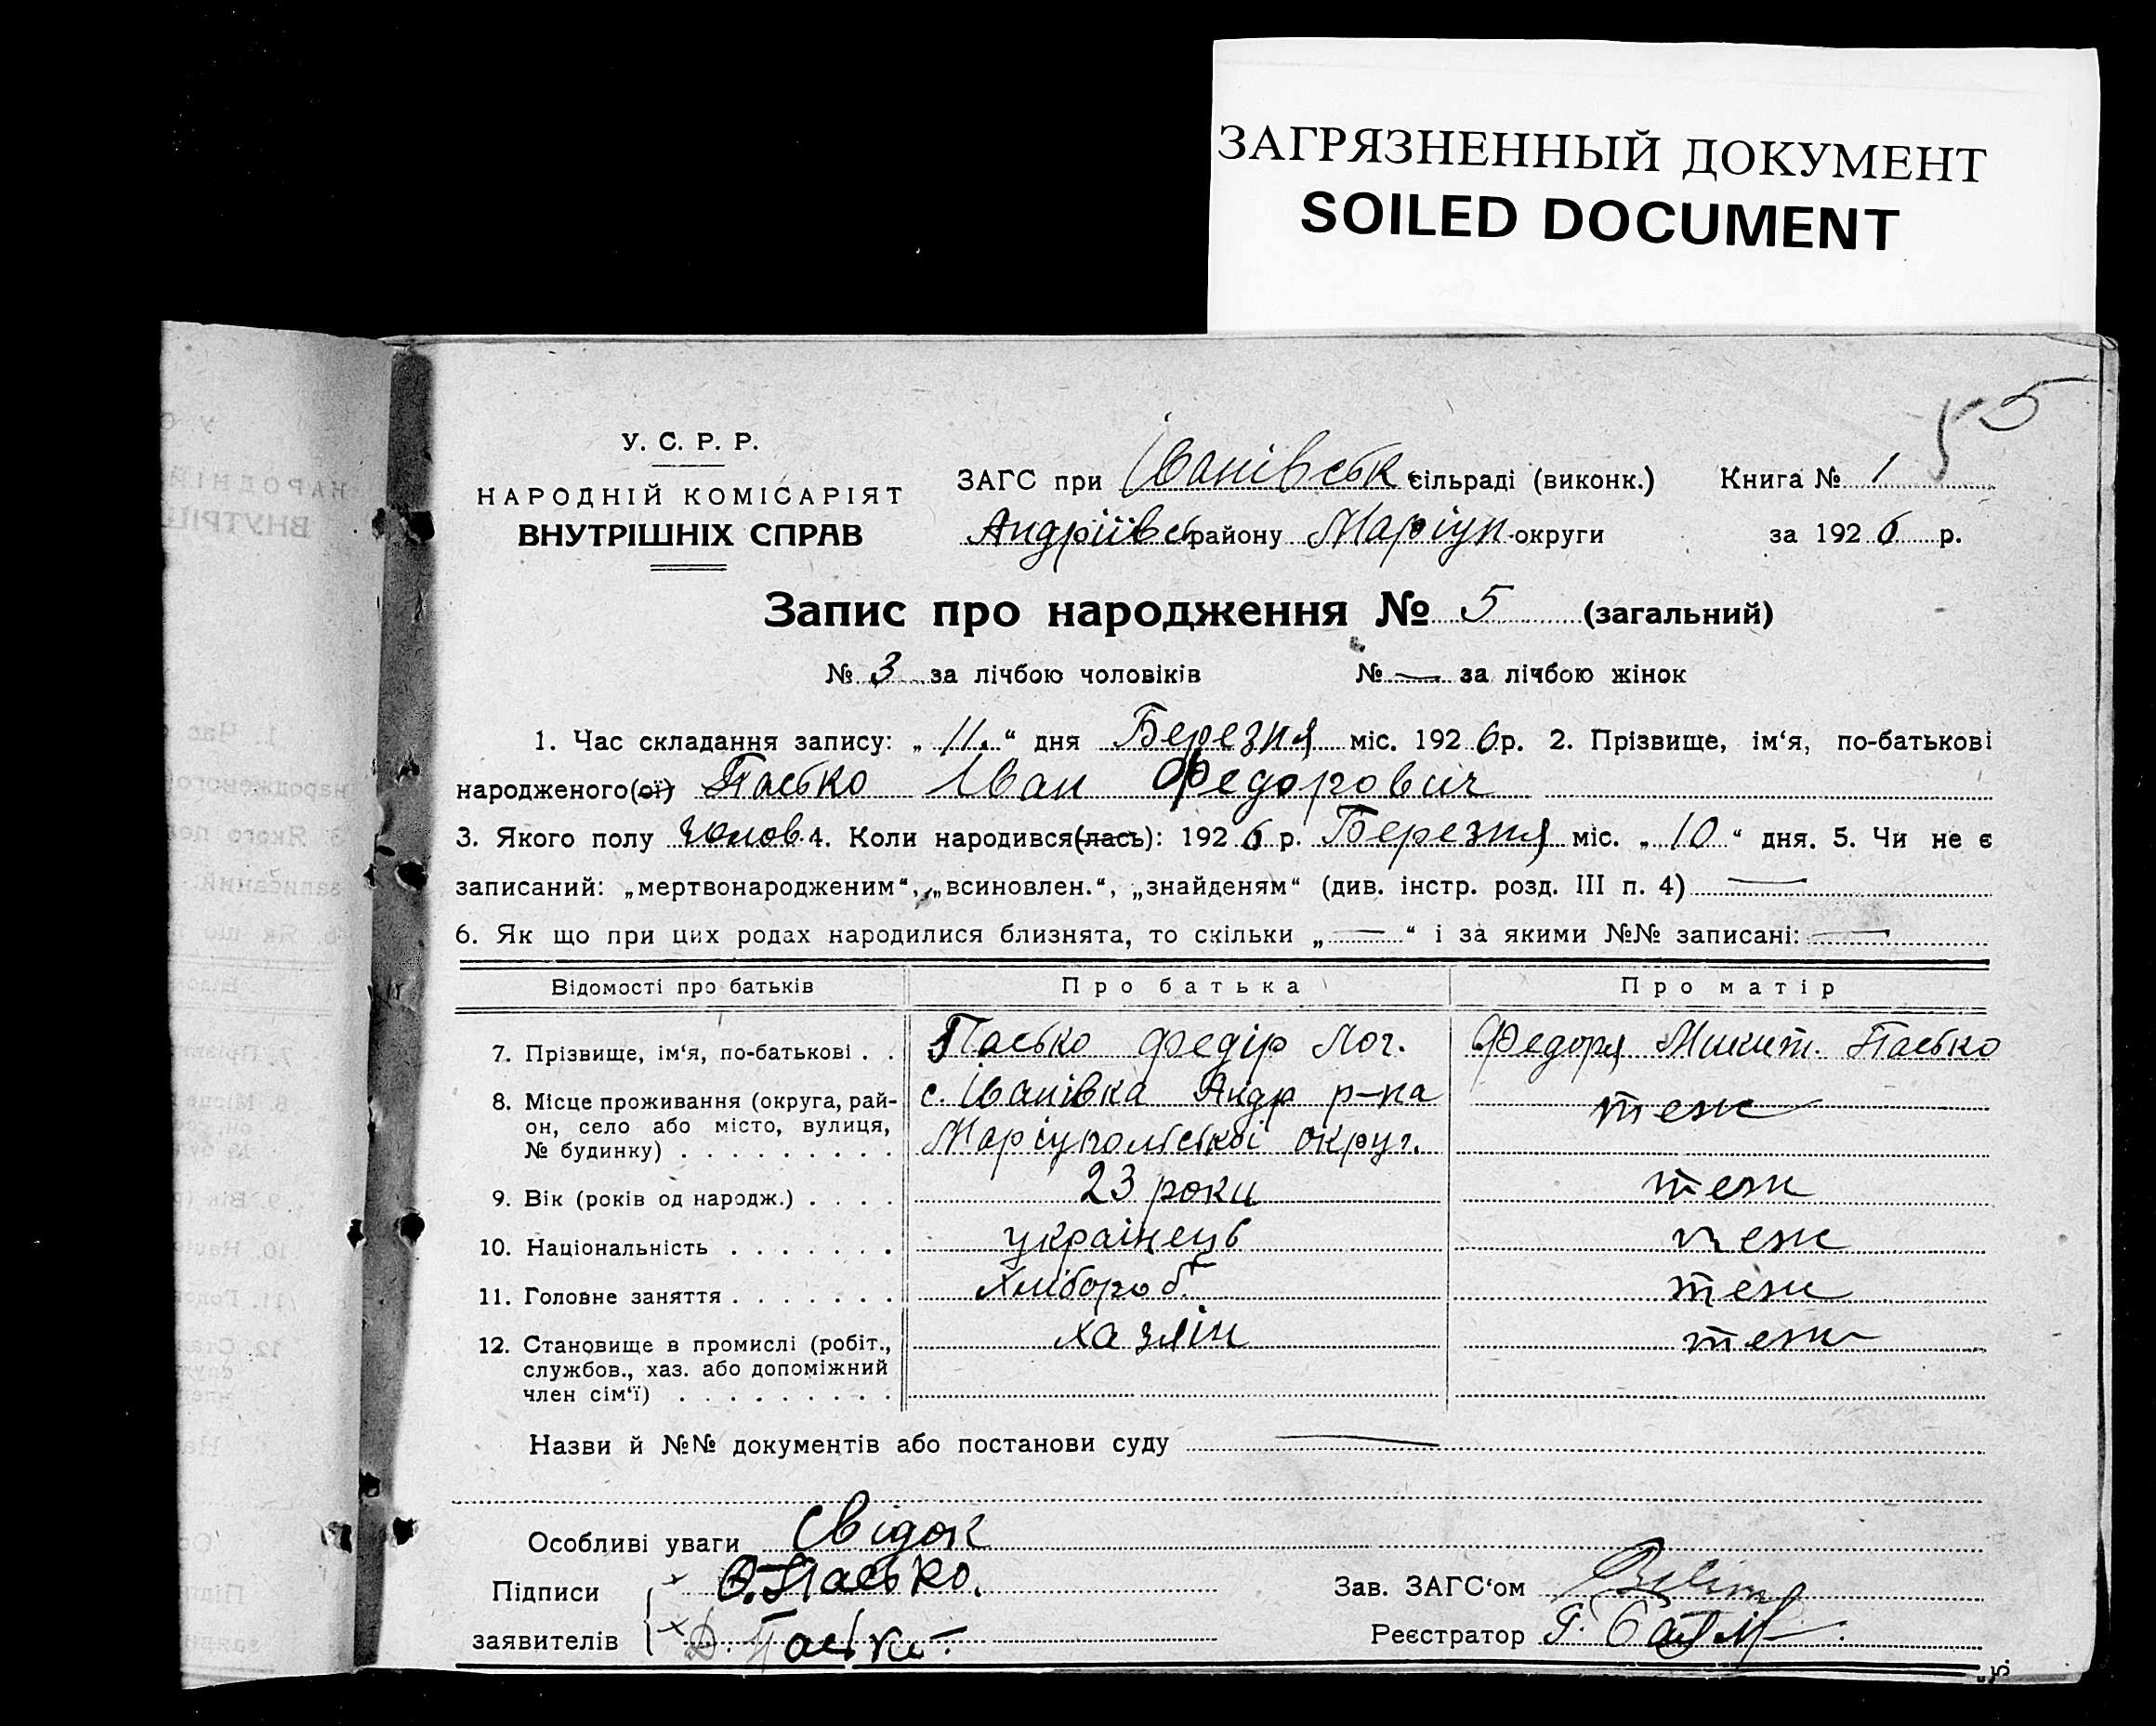 ЗАГРЯЗНЕННЫЙ ДОКУМЕНТ
SOILED DOCUMENT
5
У. С. Р. Р.
НАРОДНІЙ КОМІСАРІЯТ
ВНУТРІШНІХ СПРАВ
ЗАГС при Іванівськ сільраді (виконк.) Книга № 1
Андріївськ району Маріуп. округи за 1926 р.
Запис про народження № 5 (загальний)
№ 3 за лічбою чоловіків № — за лічбою жінок
1. Час складання запису: „11.“ дня Березня міс. 1926 р. 2. Прізвище, ім‘я, по-батькові
народженого(ої) Пасько Іван Федорович
3. Якого полу чолов. 4. Коли народився(лась): 1926 р. Березня міс. „10“ дня. 5. Чи не є
записаний: „мертвонародженим“, „всиновлен.“, „знайденям“ (див. інстр. розд. III п. 4) —
6. Як що при цих родах народилися близнята, то скільки „—“ і за якими №№ записані: —
Відомості про батьків Про батька Про матір
7. Прізвище, ім‘я, по-батькові . . Пасько Федір Лог. Федоря Микит. Пасько
8. Місце проживання (округа, рай- с. Іванівка Андр р-на теж
он, село або місто, вулиця, Маріупольської округ.
№ будинку) . . . . . . . . .
9. Вік (років од народж.) . . . . 23 роки теж
10. Національність . . . . . . . українець теж
11. Головне заняття . . . . . . . хлібороб. теж
12. Становище в промислі (робіт., хазяїн теж
службов., хаз. або допоміжний
член сім‘ї) . . . . . . . . .
Назви й №№ документів або постанови суду —
Особливі уваги Свідок
Підписи × Ф. Пасько. Зав. ЗАГС‘ом
заявителів × Д. Пасько. Реєстратор Г.